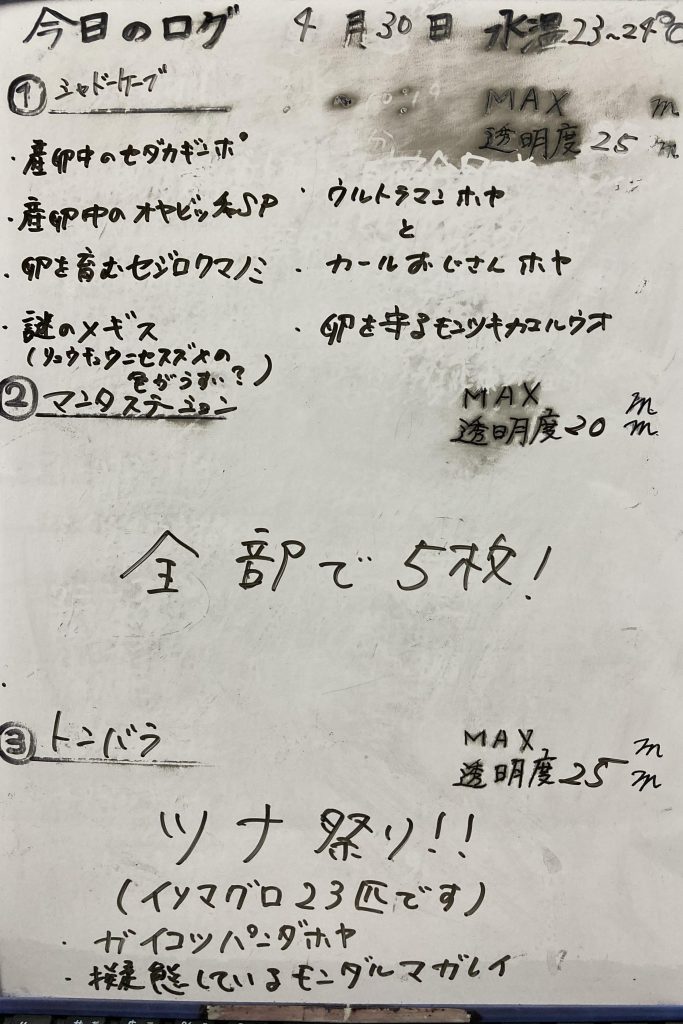 今日のログ 4月30日 水温23~24℃
① シャドーケーブ
MAX m
透明度25m
・産卵中のセダカギンポ
・産卵中のオヤビッチャSP
・卵を育むセジロクマノミ
・謎のメギス
(リュウキュウニセスズメの
色がうすい?)
・ウルトラマンホヤ
と
カールおじさんホヤ
・卵を守るモンツキカエルウオ
② マンタステーション
MAX m
透明度20m
全部で5枚!
③ トンバラ
MAX m
透明度25m
ツナ祭り!!
(イソマグロ23匹です)
・ガイコツパンダホヤ
・擬態しているモンダルマガレイ